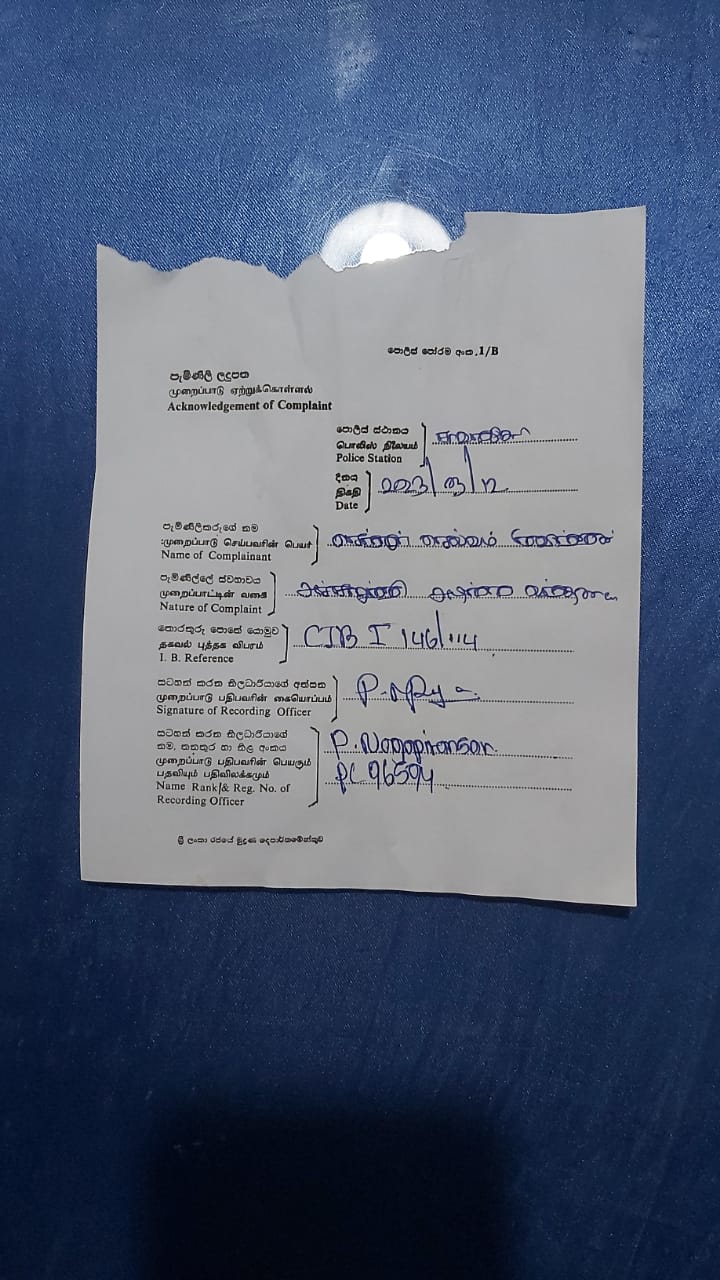 පොලිස් පෝරම අංක. 1/B
පැමිණිලි ලදුපත
முறைப்பாடு ஏற்றுக்கொள்ளல்
Acknowledgement of Complaint
පොලිස් ස්ථානය
பொலிஸ் நிலையம்
Police Station
දිනය
திகதி
Date
2023/03/12
පැමිණිලිකරුගේ නම
முறைப்பாடு செய்பவரின் பெயர்
Name of Complainant
පැමිණිල්ලේ ස්වභාවය
முறைப்பாட்டின் வகை
Nature of Complaint
තොරතුරු පොතේ යොමුව
தகவல் புத்தக விபரம்
I. B. Reference
CIB I 146/114
සටහන් කරන නිලධාරියාගේ අත්සන
முறைப்பாடு பதிபவரின் கையொப்பம்
Signature of Recording Officer
සටහන් කරන නිලධාරියාගේ
නම, තනතුර හා නිල අංකය
முறைப்பாடு பதிபவரின் பெயரும்
பதவியும் பதிவிலக்கமும்
Name Rank & Reg. No. of
Recording Officer
PC 96594
ශ්‍රී ලංකා රජයේ මුද්‍රණ දෙපාර්තමේන්තුව